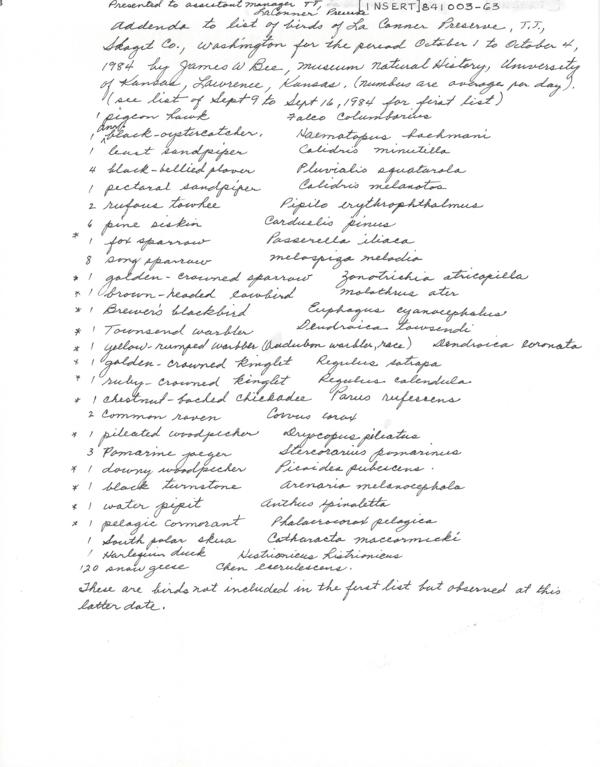 Presented to assistant manager TT, [INSERT] 841003-63
LaConner Preserve
Addenda to list of birds of La Conner Preserve, T.T.,
Skagit Co., Washington for the period October 1 to October 4,
1984 by James W Bee, Museum Natural History, University
of Kansas, Lawrence, Kansas. (numbers are average per day).
(see list of Sept 9 to Sept 16, 1984 for first list)
1 pigeon hawk Falco Columbarius
1 black-oystercatcher. Haematopus bachmani
1 least sandpiper Calidris minutilla
4 black-bellied plover Pluvialis squatarola
1 pectoral sandpiper Calidris melanotos
2 rufous towhee Pipilo erythrophthalmus
6 pine siskin Carduelis pinus
* 1 fox sparrow Passerella iliaca
8 song sparrow melospiza melodia
* 1 golden-crowned sparrow Zonotrichia atricapilla
* 1 brown-headed cowbird Molothrus ater
* 1 Brewer's blackbird Euphagus cyanocephalus
* 1 Townsend warbler Dendroica towsendi
* 1 yellow-rumped warbler (Audubon warbler, race) Dendroica coronata
* 1 golden-crowned kinglet Regulus satrapa
* 1 ruby-crowned kinglet Regulus calendula
* 1 chestnut-backed chickadee Parus rufescens
2 common raven Corvus corax
* 1 pileated woodpecker Dryocopus pileatus
3 Pomarine jaeger Stercorarius pomarinus
* 1 downy woodpecker Picoides pubescens.
* 1 black turnstone Arenaria melanocephala
* 1 water pipit Anthus spinoletta
* 1 pelagic cormorant Phalacrocorax pelagica
1 South polar skua Catharacta maccormicki
1 Harlequin duck Histrionicus histrionicus
120 snow geese Chen caerulescens.
These are birds not included in the first list but observed at this
latter date.